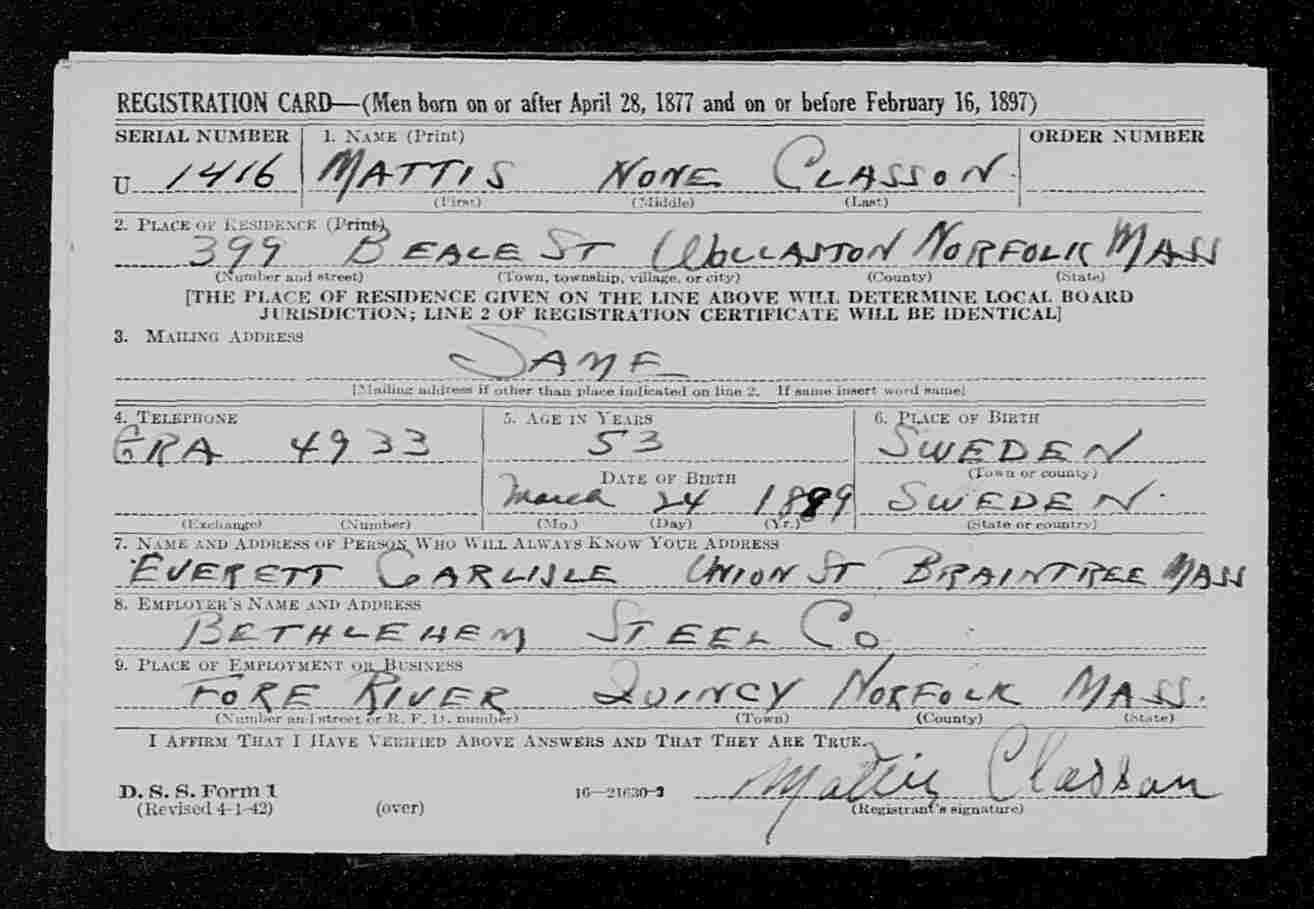 REGISTRATION CARD—(Men born on or after April 28, 1877 and on or before February 16, 1897)
SERIAL NUMBER 1. NAME (Print) ORDER NUMBER
U 1416 MATTIS NONE CLASSON
(First) (Middle) (Last)
2. PLACE OF RESIDENCE (Print)
399 BEALE ST WOLLASTON NORFOLK MASS
(Number and street) (Town, township, village, or city) (County) (State)
[THE PLACE OF RESIDENCE GIVEN ON THE LINE ABOVE WILL DETERMINE LOCAL BOARD
JURISDICTION; LINE 2 OF REGISTRATION CERTIFICATE WILL BE IDENTICAL]
3. MAILING ADDRESS
SAME
[Mailing address if other than place indicated on line 2. If same insert word same]
4. TELEPHONE 5. AGE IN YEARS 6. PLACE OF BIRTH
GRA 4933 53 SWEDEN
(Town or county)
DATE OF BIRTH
March 24 1889 SWEDEN
(Exchange) (Number) (Mo.) (Day) (Yr.) (State or country)
7. NAME AND ADDRESS OF PERSON WHO WILL ALWAYS KNOW YOUR ADDRESS
EVERETT CARLISLE UNION ST BRAINTREE MASS
8. EMPLOYER'S NAME AND ADDRESS
BETHLEHEM STEEL CO
9. PLACE OF EMPLOYMENT OR BUSINESS
FORE RIVER QUINCY NORFOLK MASS.
(Number and street or R. F. D. number) (Town) (County) (State)
I AFFIRM THAT I HAVE VERIFIED ABOVE ANSWERS AND THAT THEY ARE TRUE.
D. S. S. Form 1
(Revised 4-1-42) (over) 16—21630-2 Mattis Classon
(Registrant's signature)